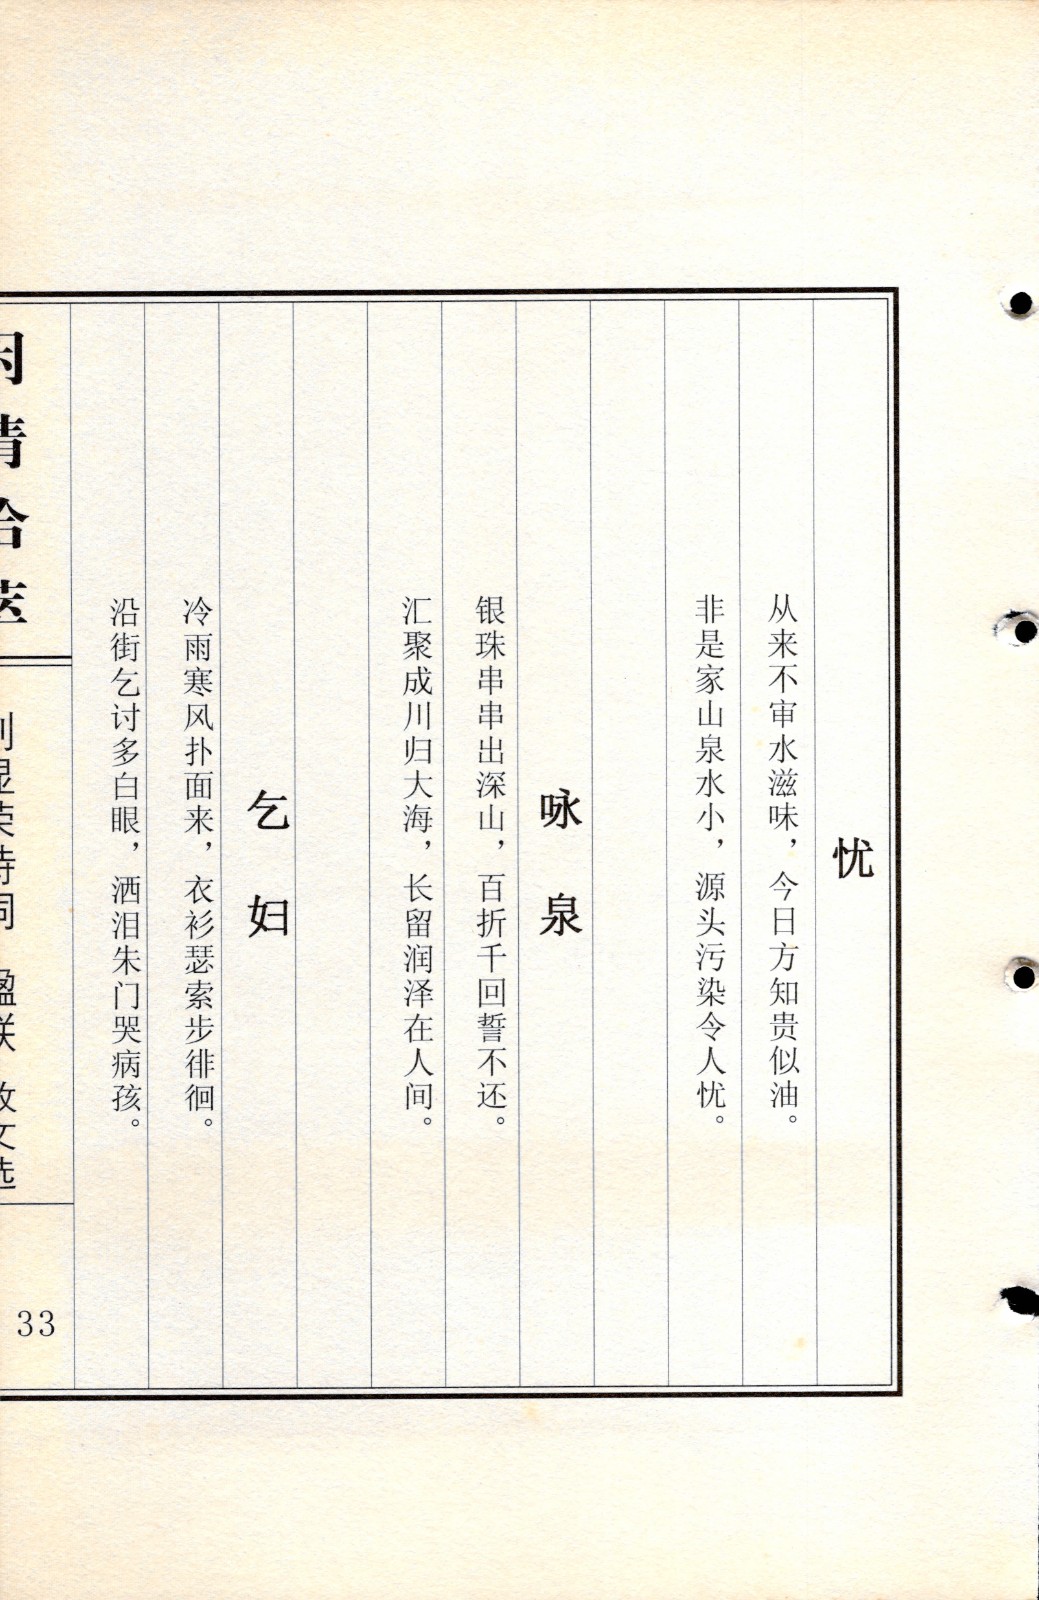 忧
从来不审水滋味，今日方知贵似油。
非是家山泉水小，源头污染令人忧。
咏泉
银珠串串出深山，百折千回誓不还。
汇聚成川归大海，长留润泽在人间。
乞妇
冷雨寒风扑面来，衣衫瑟索步徘徊。
沿街乞讨多白眼，洒泪朱门哭病孩。
33